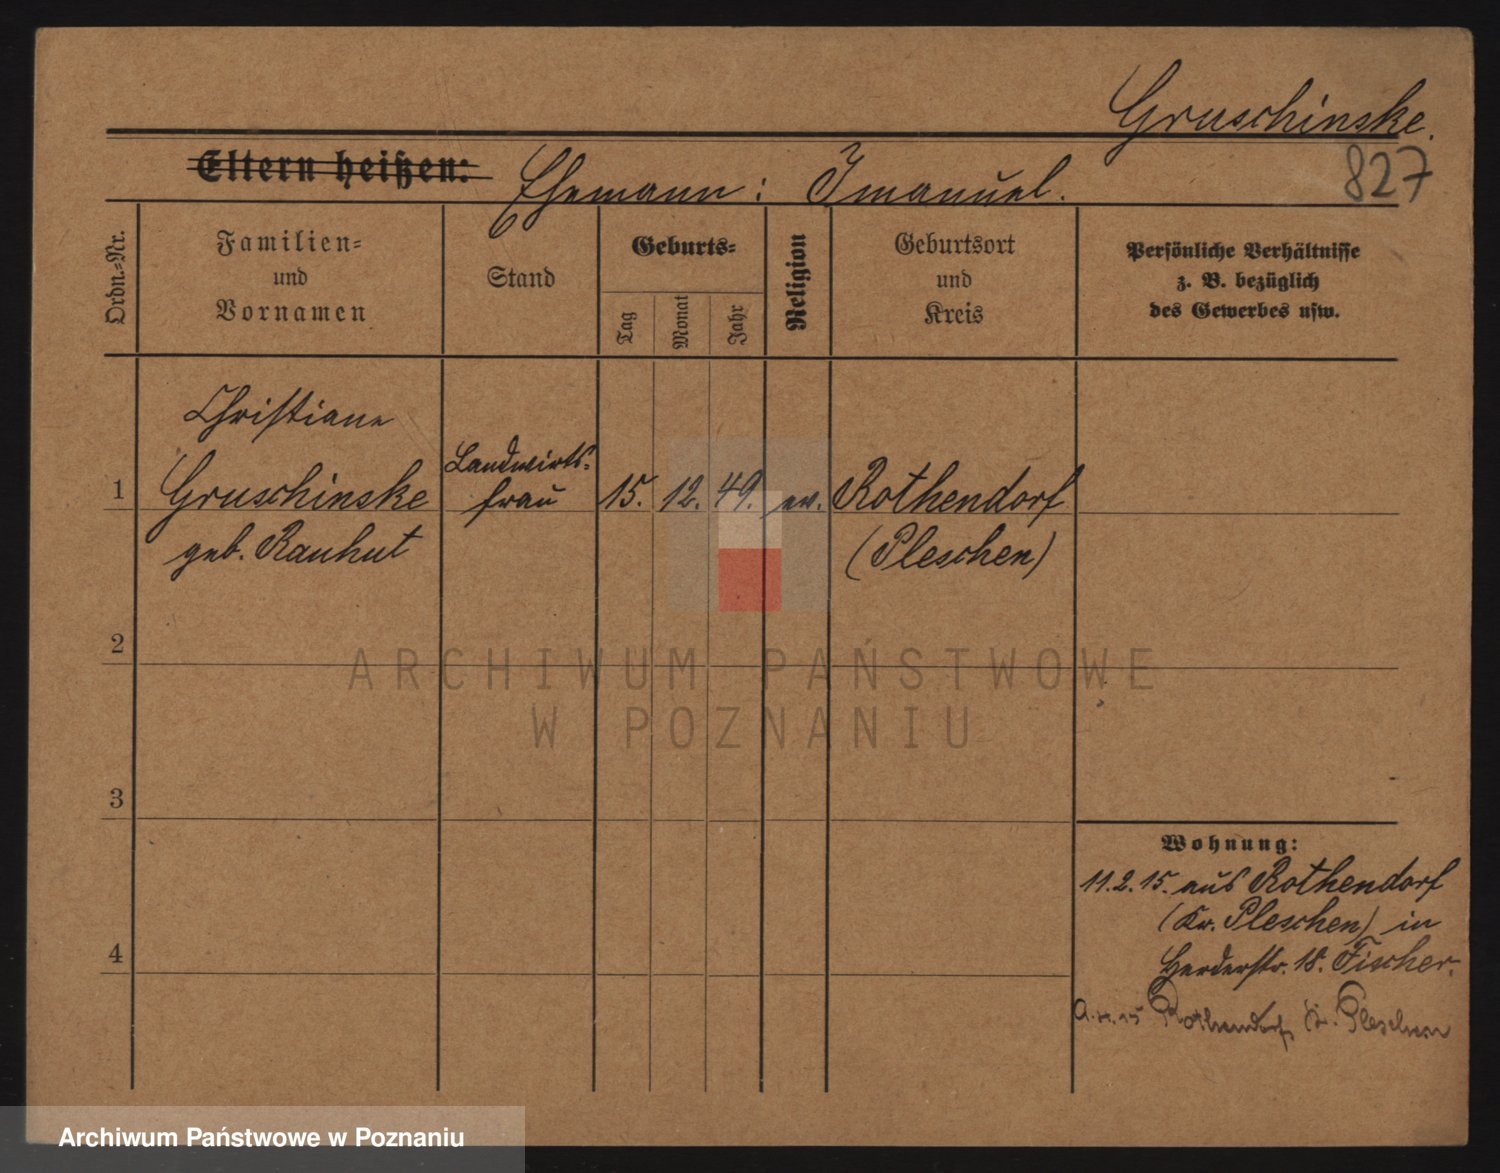 Gruschinske.
827
Eltern heißen: Ehemann: Imanuel.
Ordn.=Nr.
Familien=
und
Vornamen
Stand
Geburts=
Tag
Monat
Jahr
Religion
Geburtsort
und
Kreis
Persönliche Verhältnisse
z. B. bezüglich
des Gewerbes usw.
1
Christiane
Gruschinske
geb. Rauhut
Landwirts=
frau
15. 12. 49. ev.
Rothendorf
(Pleschen)
2
3
4
Wohnung:
11.2.15. aus Rothendorf
(Kr. Pleschen) in
Herderstr. 18. Fischer.
Rothendorf Kr. Pleschen
ARCHIWUM PAŃSTWOWE
W POZNANIU
Archiwum Państwowe w Poznaniu